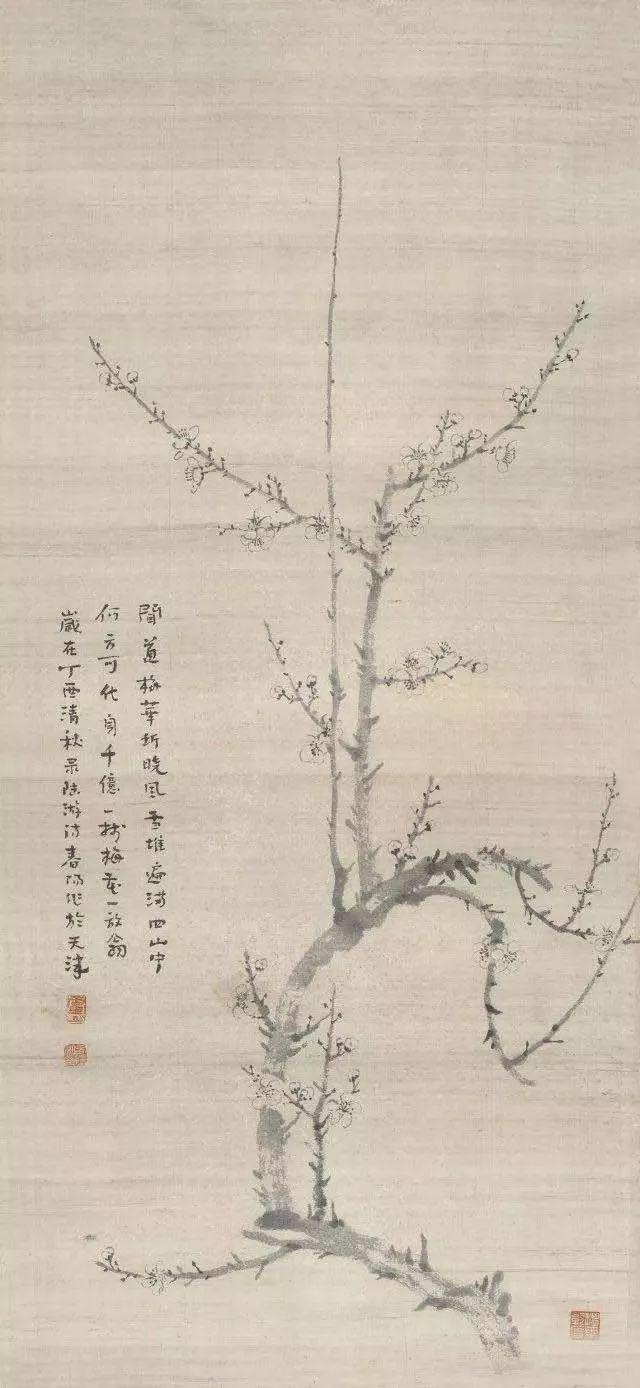 聞道梅華坼曉風雪堆遍滿四山中
何方可化身千億一樹梅花一放翁
歲在丁酉清秋录陸游詩春陽作於天津